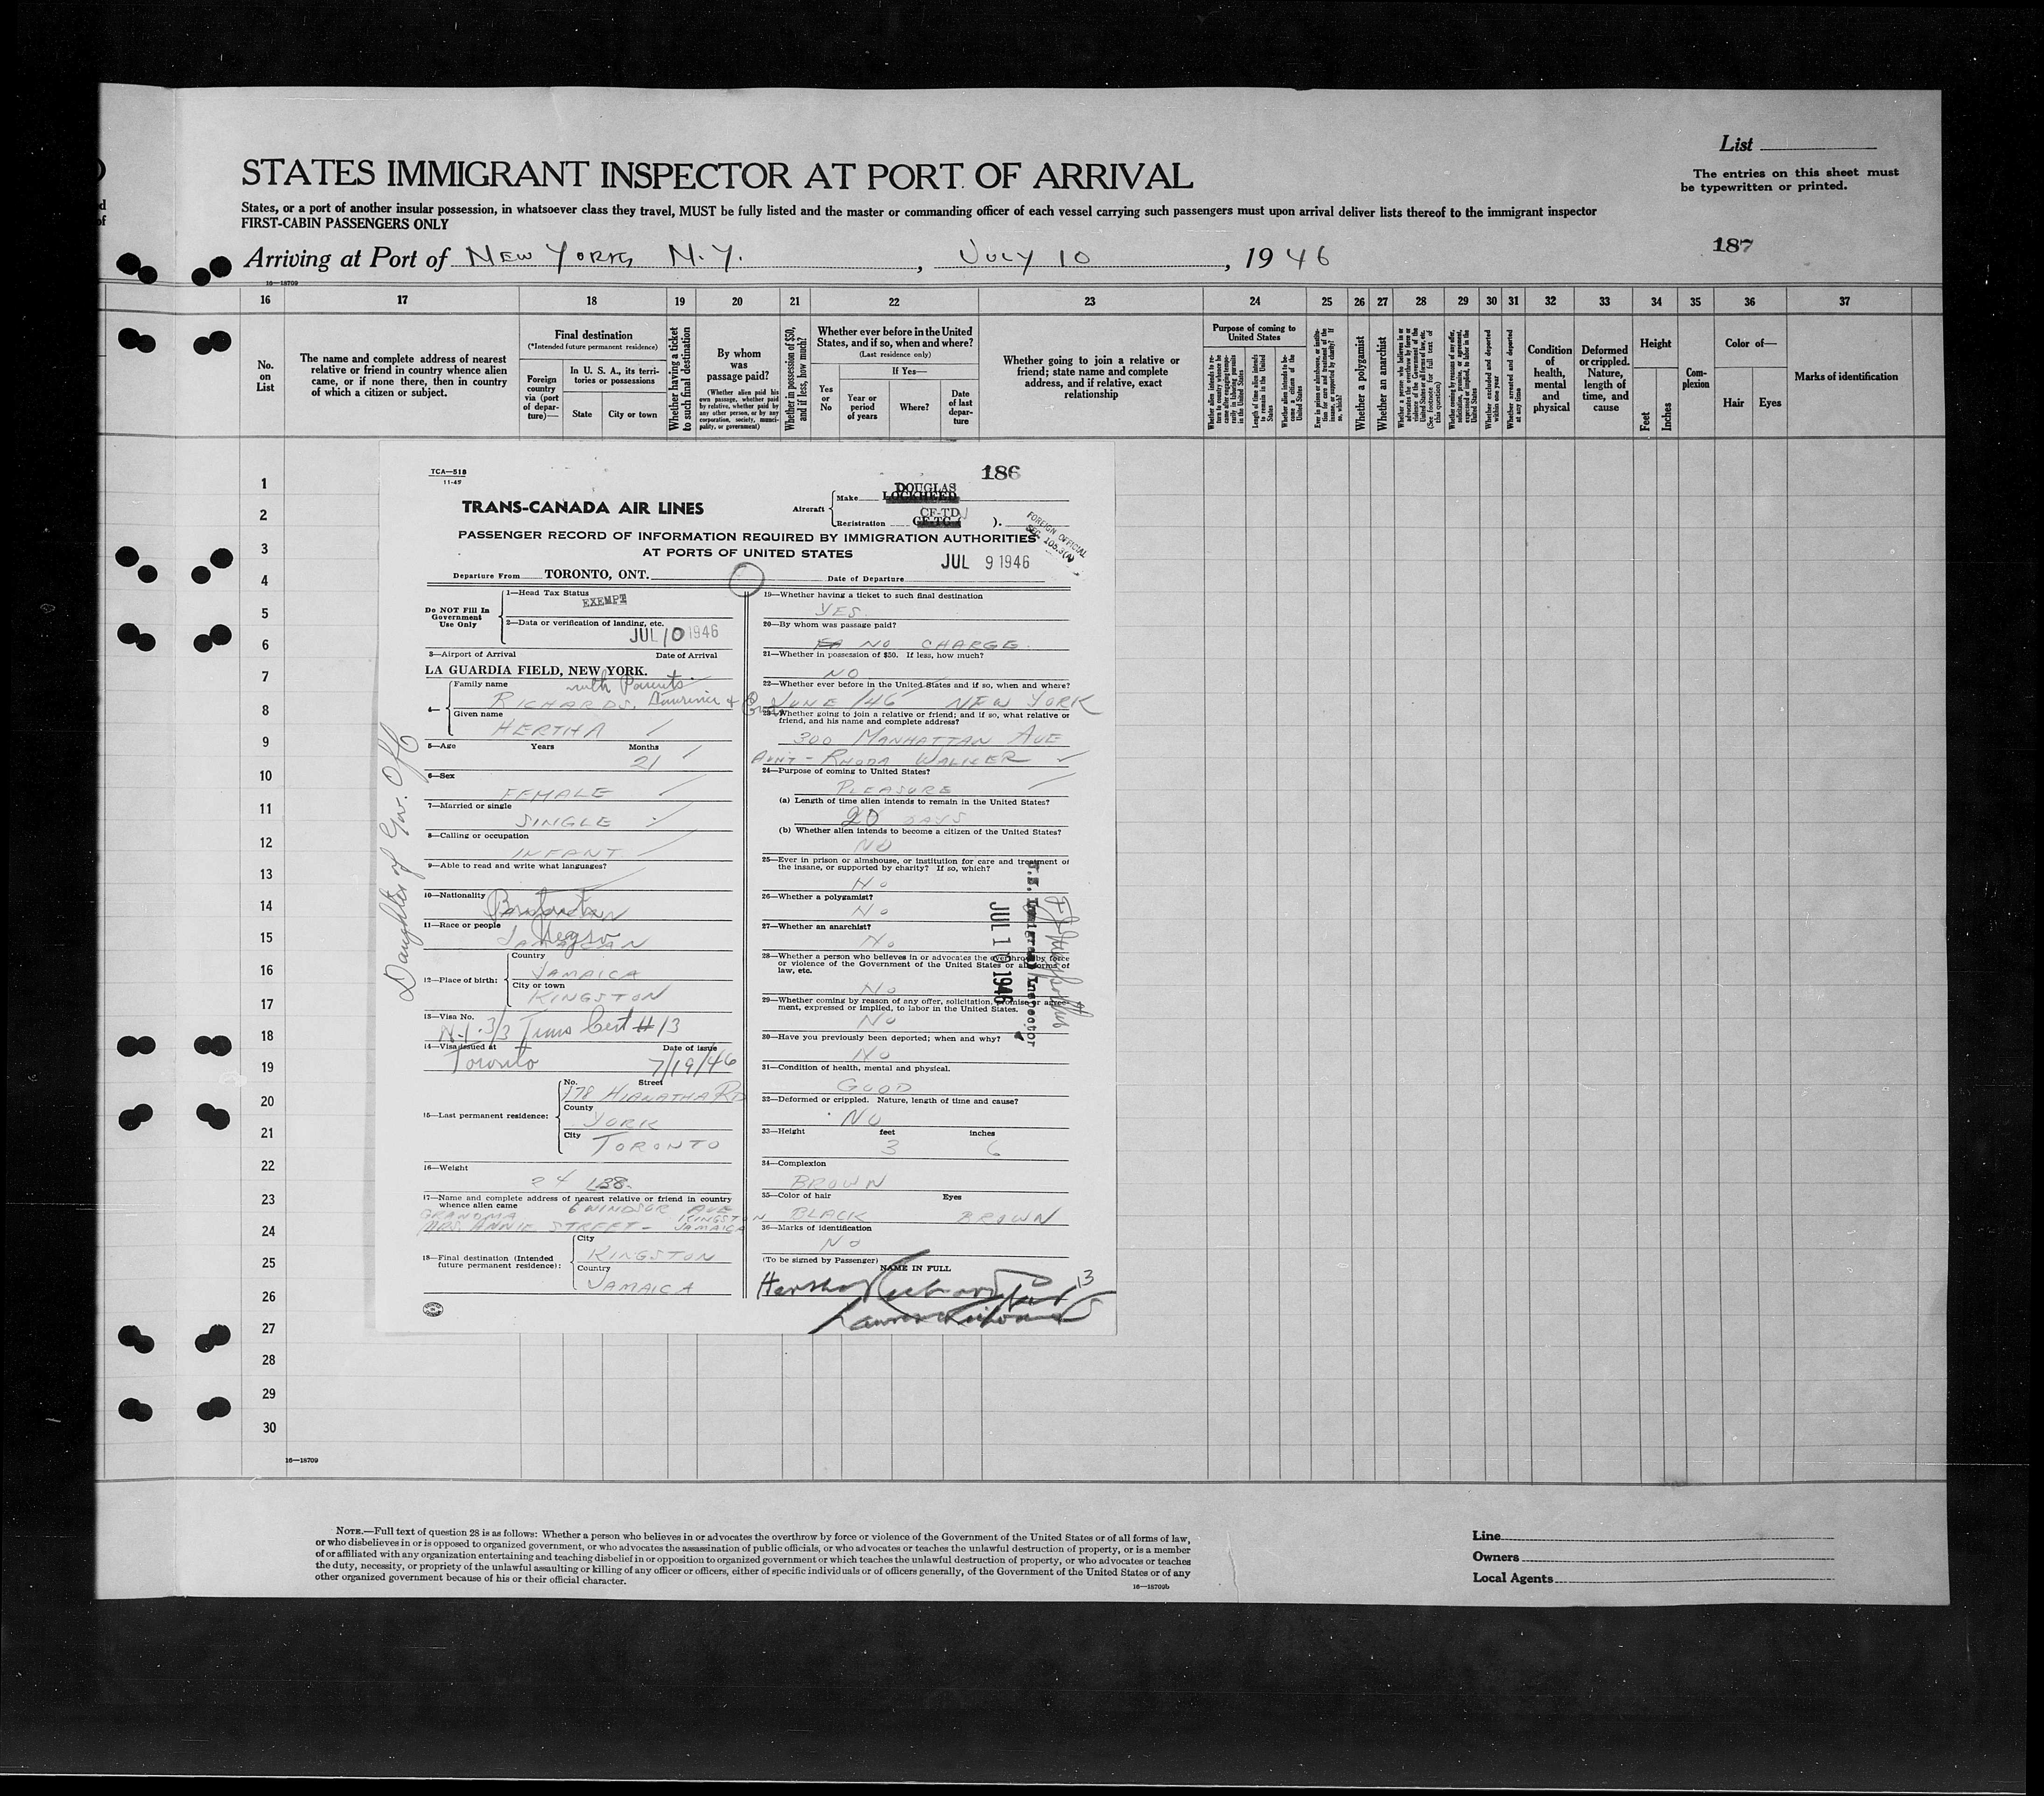 List
STATES IMMIGRANT INSPECTOR AT PORT OF ARRIVAL
The entries on this sheet must
be typewritten or printed.
States, or a port of another insular possession, in whatsoever class they travel, MUST be fully listed and the master or commanding officer of each vessel carrying such passengers must upon arrival deliver lists thereof to the immigrant inspector
FIRST-CABIN PASSENGERS ONLY
187
Arriving at Port of NEW YORK, N.Y., JULY 10, 1946
16—18709
16 17 18 19 20 21 22 23 24 25 26 27 28 29 30 31 32 33 34 35 36 37
No.
on
List
The name and complete address of nearest
relative or friend in country whence alien
came, or if none there, then in country
of which a citizen or subject.
Final destination
(*Intended future permanent residence)
Foreign
country
via (port
of depar-
ture)—
In U. S. A., its terri-
tories or possessions
State
City or town
Whether having a ticket
to such final destination
By whom
was
passage paid?
(Whether alien paid his
own passage, whether paid
by relative, whether paid by
any other person, or by any
corporation, society, munici-
pality, or government)
Whether in possession of $50,
and if less, how much?
Whether ever before in the United
States, and if so, when and where?
(Last residence only)
Yes
or
No
If Yes—
Year or
period
of years
Where?
Date
of last
depar-
ture
Whether going to join a relative or
friend; state name and complete
address, and if relative, exact
relationship
Purpose of coming to
United States
Whether alien intends to re-
turn to country whence he
came after engaging tempo-
rarily in laboring pursuits
in the United States
Length of time alien intends
to remain in the United
States
Whether alien intends to be-
come a citizen of the
United States
Whether a polygamist
Whether an anarchist
Whether excluded and deported
within one year
Whether arrested and deported
at any time
Condition
of
health,
mental
and
physical
Deformed
or crippled.
Nature,
length of
time, and
cause
Height
Feet
Inches
Com-
plexion
Color of—
Hair
Eyes
Marks of identification
1
2
3
4
5
6
7
8
9
10
11
12
13
14
15
16
17
18
19
20
21
22
23
24
25
26
27
28
29
30
TCA—518
11-45
186
TRANS-CANADA AIR LINES
Aircraft
Make DOUGLAS
LOCKHEED
Registration CF-TD
CF-TC
FOREIGN OFFICIAL
SEC. 105.3(A)
PASSENGER RECORD OF INFORMATION REQUIRED BY IMMIGRATION AUTHORITIES
AT PORTS OF UNITED STATES
JUL 9 1946
Departure From TORONTO, ONT.
Date of Departure
Do NOT Fill In
Government
Use Only
1—Head Tax Status
EXEMPT
2—Data or verification of landing, etc.
JUL 10 1946
3—Airport of Arrival Date of Arrival
LA GUARDIA FIELD, NEW YORK.
with Parents
4—
Family name
RICHARDS,
Given name
HERTHA
5—Age Years Months
21
6—Sex
FEMALE
7—Married or single
SINGLE
8—Calling or occupation
INFANT
9—Able to read and write what languages?
10—Nationality
11—Race or people
Negro
JAMAICAN
12—Place of birth:
Country
JAMAICA
City or town
KINGSTON
13—Visa No.
3/3 Trans Cert #13
14—Visa issued at Date of issue
Toronto 7/19/46
15—Last permanent residence:
No. Street
178 HIAWATHA RD
County
YORK
City
TORONTO
16—Weight
24 LBS.
17—Name and complete address of nearest relative or friend in country
whence alien came
GRANDMA 6 WINDSOR AVE
MRS. ANNIE STREET - KINGSTON JAMAICA
18—Final destination (Intended
future permanent residence):
City
KINGSTON
Country
JAMAICA
Daughter of Gov. Off
19—Whether having a ticket to such final destination
YES.
20—By whom was passage paid?
NO CHARGE.
21—Whether in possession of $50. If less, how much?
NO
22—Whether ever before in the United States and if so, when and where?
JUNE /46 NEW YORK
23—Whether going to join a relative or friend; and if so, what relative or
friend, and his name and complete address?
300 MANHATTAN AVE
AUNT - RHODA WALKER
24—Purpose of coming to United States?
PLEASURE
(a) Length of time alien intends to remain in the United States?
20 DAYS
(b) Whether alien intends to become a citizen of the United States?
NO
25—Ever in prison or almshouse, or institution for care and treatment of
the insane, or supported by charity? If so, which?
No
26—Whether a polygamist?
No
27—Whether an anarchist?
No
28—Whether a person who believes in or advocates the overthrow by force
or violence of the Government of the United States or all forms of
law, etc.
No
29—Whether coming by reason of any offer, solicitation, promise or agree-
ment, expressed or implied, to labor in the United States.
No
30—Have you previously been deported; when and why?
No
31—Condition of health, mental and physical.
GOOD
32—Deformed or crippled. Nature, length of time and cause?
NO
33—Height feet inches
3 6
34—Complexion
BROWN
35—Color of hair Eyes
BLACK BROWN
36—Marks of identification
No
(To be signed by Passenger)
NAME IN FULL
13
U.S. Immigrant Inspector
JUL 10 1946
16—18709
NOTE.—Full text of question 28 is as follows: Whether a person who believes in or advocates the overthrow by force or violence of the Government of the United States or of all forms of law,
or who disbelieves in or is opposed to organized government, or who advocates the assassination of public officials, or who advocates or teaches the unlawful destruction of property, or is a member
of or affiliated with any organization entertaining and teaching disbelief in or opposition to organized government or which teaches the unlawful destruction of property, or who advocates or teaches
the duty, necessity, or propriety of the unlawful assaulting or killing of any officer or officers, either of specific individuals or of officers generally, of the Government of the United States or of any
other organized government because of his or their official character.
16—18709b
Line
Owners
Local Agents